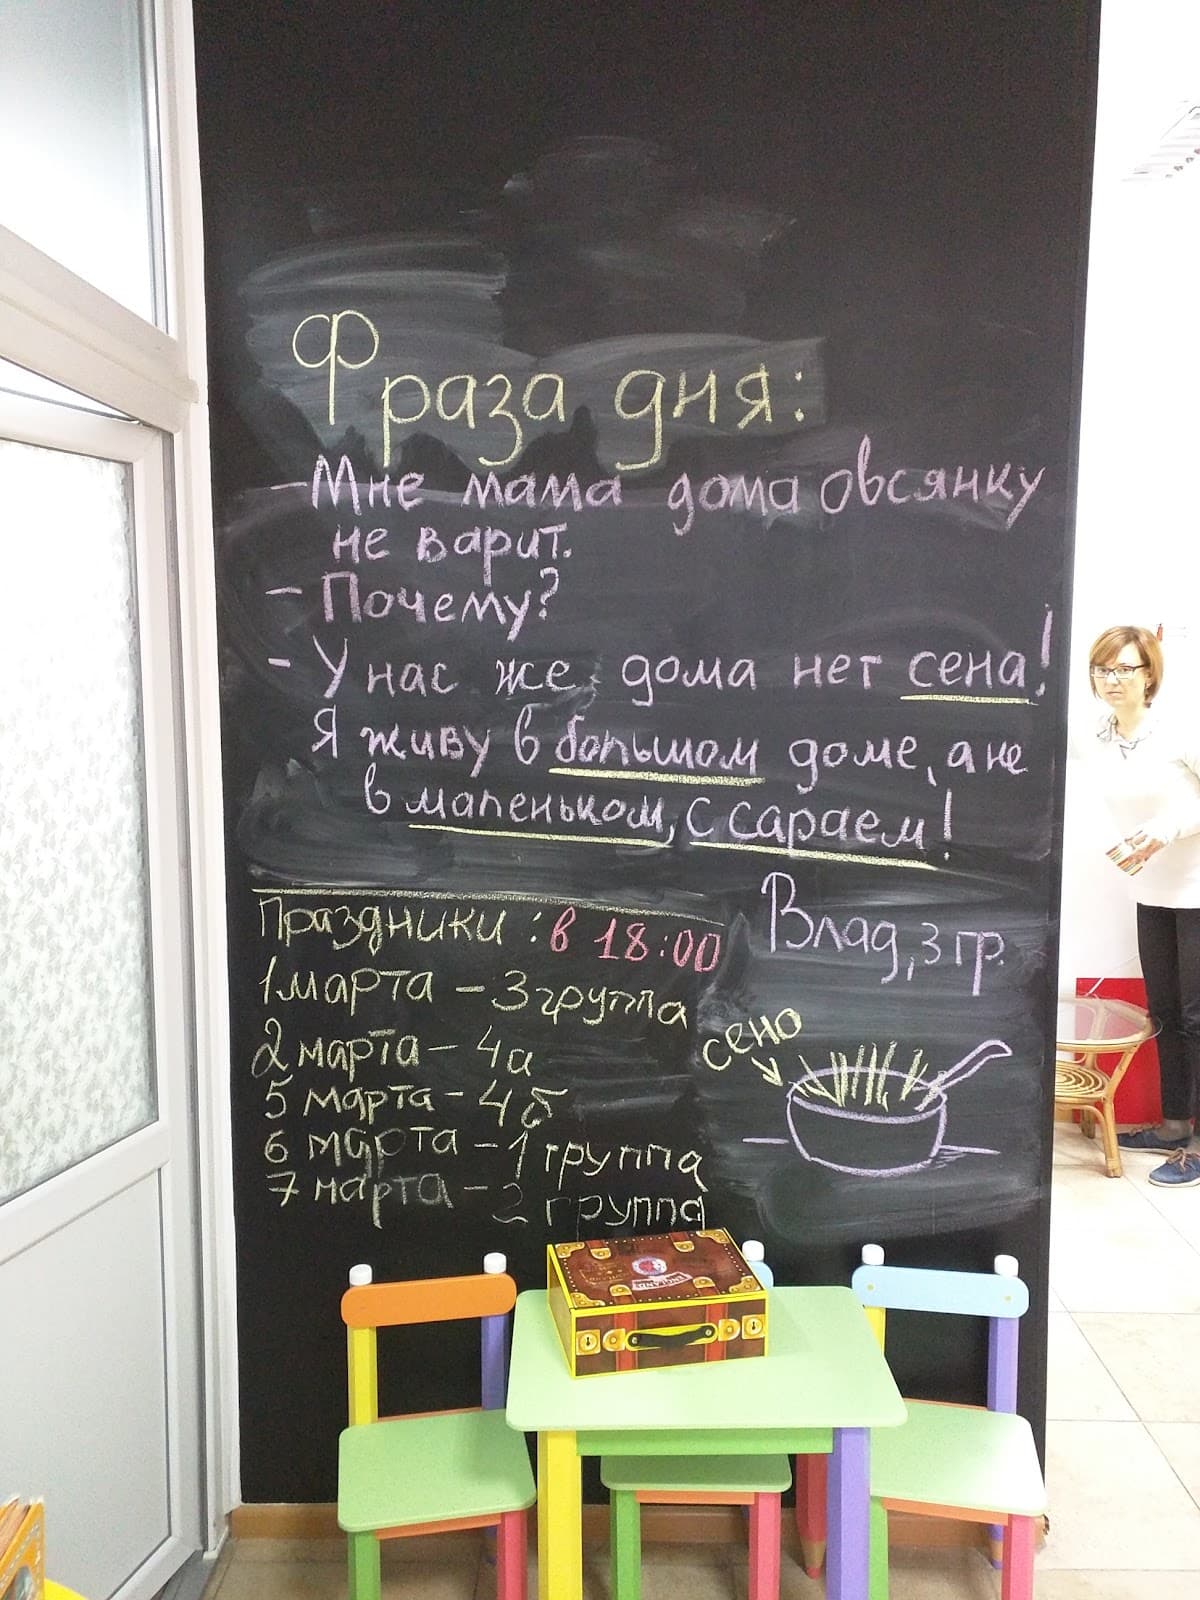 Фраза дня:
– Мне мама дома овсянку
не варит.
– Почему?
– У нас же дома нет сена!
Я живу в большом доме, а не
в маленьком, с сараем!
Влад, 3 гр.
Праздники: в 18:00
1 марта – 3 группа
2 марта – 4а
5 марта – 4б
6 марта – 1 группа
7 марта – 2 группа
сено
ENGLAND